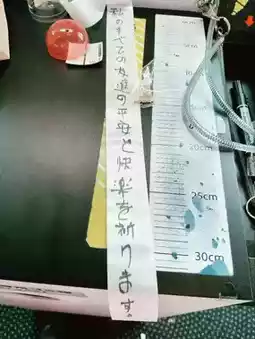 私のすべての友達の平安と快楽を祈ります。
25cm
30cm